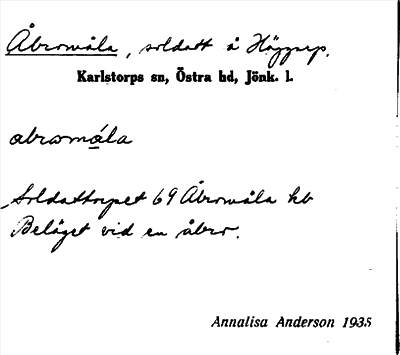 Åbromåla, soldatt å Häggarp.
Karlstorps sn, Östra hd, Jönk. l.
abromåla
Soldattorpet 69 Åbromåla hb
Beläget vid en åbro.
Annalisa Anderson 1935